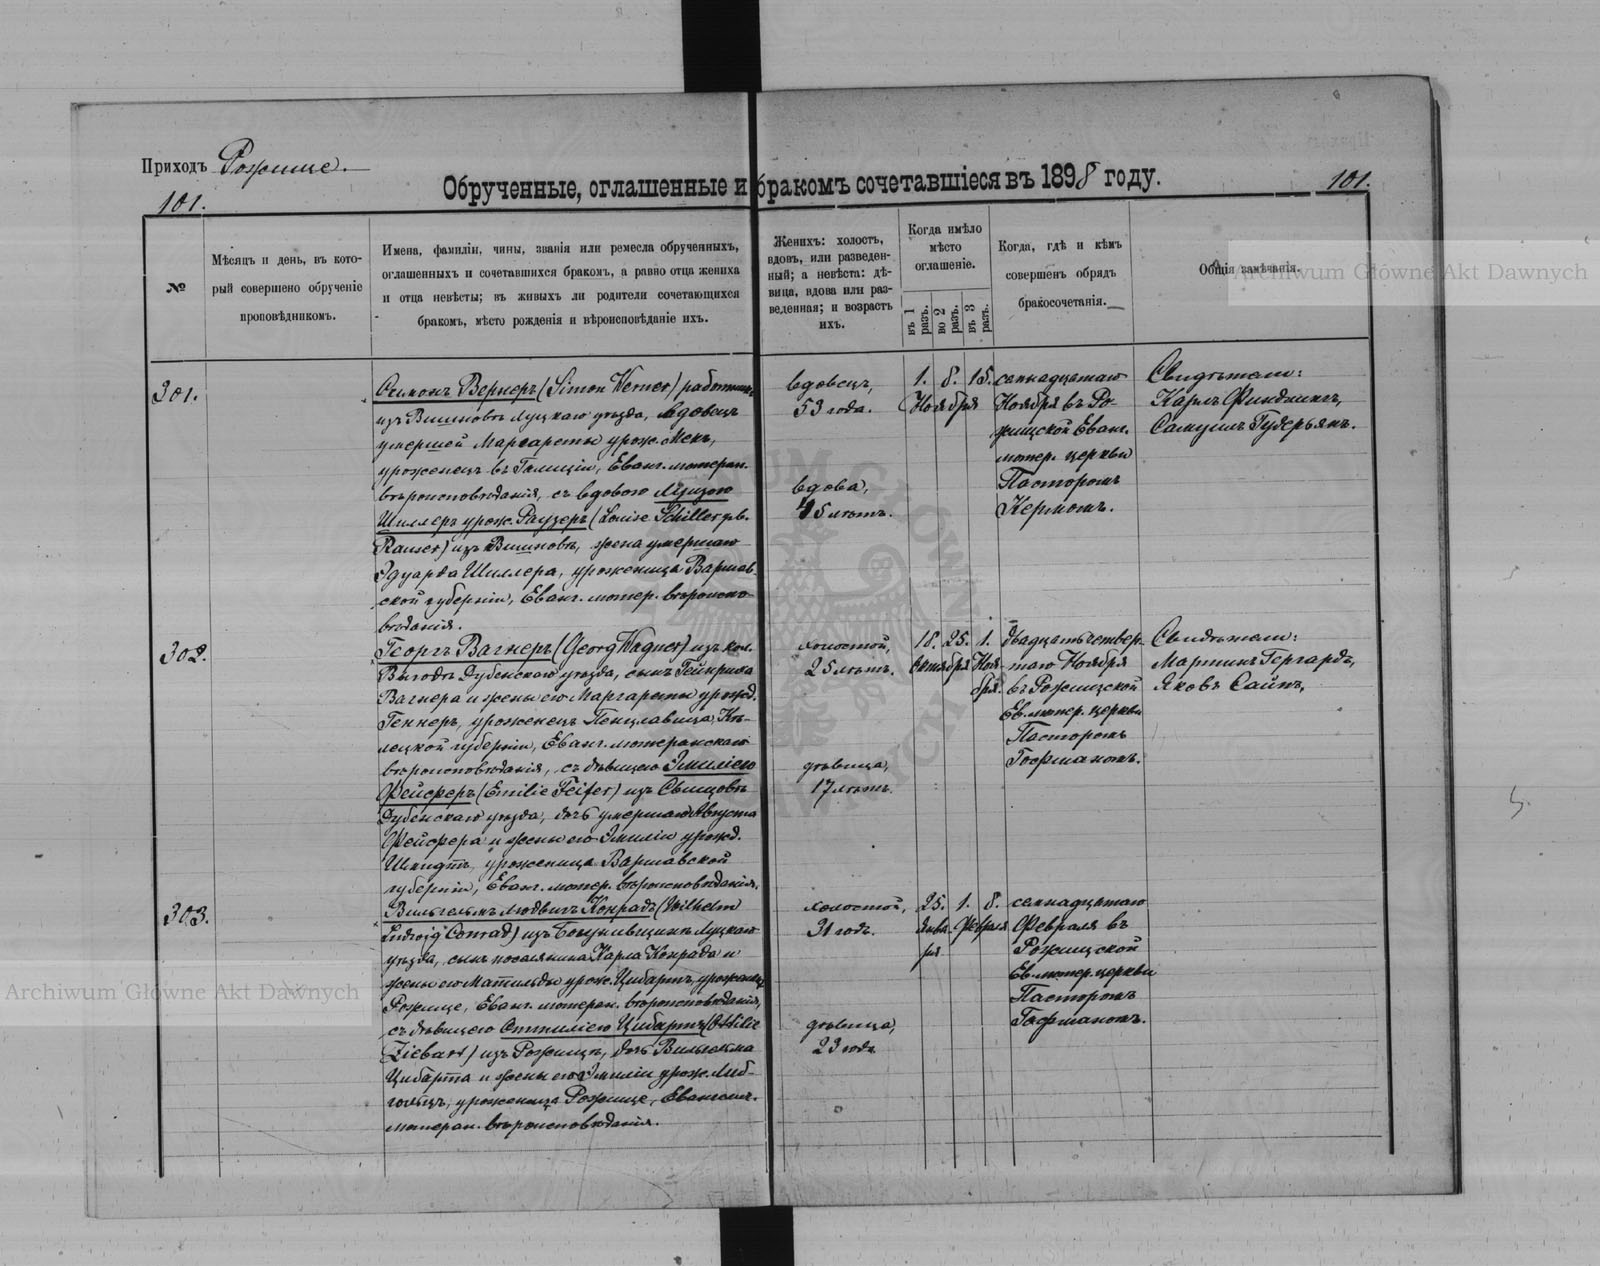 Приходъ Рожище.
Обрученные, оглашенные и бракомъ сочетавшіеся въ 1898 году.
101.
101.
№
Мѣсяцъ и день, въ кото-
рый совершено обрученіе
проповѣдникомъ.
Имена, фамиліи, чины, званія или ремесла обрученныхъ,
оглашенныхъ и сочетавшихся бракомъ, а равно отца жениха
и отца невѣсты; въ живыхъ ли родители сочетающихся
бракомъ, мѣсто рожденія и вѣроисповѣданіе ихъ.
Женихъ: холостъ,
вдовъ, или разведен-
ный; а невѣста: дѣ-
вица, вдова или раз-
веденная; и возрастъ
ихъ.
Когда имѣло
мѣсто
оглашеніе.
въ 1 разъ.
во 2 разъ.
въ 3 разъ.
Когда, гдѣ и кѣмъ
совершенъ обрядъ
бракосочетанія.
Общія замѣчанія.
301.
Симонъ Вернеръ (Simon Werner) работникъ
изъ Вишновъ Луцкаго уѣзда, вдовецъ
умершей Маргареты урож. Мекъ,
уроженецъ въ Галиціи, Еванг. лютеран.
вѣроисповѣданія, съ вдовою Луизою
Шиллеръ урож. Раузеръ (Louise Schiller geb.
Rauser) изъ Вишновъ, жена умершаго
Эдуарда Шиллера, уроженица Варшав-
ской губерніи, Еванг. лютер. вѣроиспо-
вѣданія.
вдовецъ,
53 года.
вдова,
45 лѣтъ.
1. 8. 15.
Ноября
семнадцатаго
Ноября въ Ро-
жищской Еванг.
лютер. церкви
Пасторомъ
Кермомъ.
Свидѣтели:
Карлъ Финдлингъ,
Самуилъ Гудерьянъ.
302.
Георгъ Вагнеръ (Georg Wagner) изъ кол.
Выгодъ Дубенскаго уѣзда, сынъ Гейнриха
Вагнера и жены его Маргареты урожд.
Геннеръ, уроженецъ Пенцлавица, Кѣ-
лецкой губерніи, Еванг. лютеранскаго
вѣроисповѣданія, съ дѣвицею Эмиліею
Фейферъ (Emilie Feifer) изъ Свищовъ
Дубенскаго уѣзда, дочь умершаго Августа
Фейфера и жены его Эмиліи урожд.
Шмидтъ, уроженица Варшавской
губерніи, Еванг. лютер. вѣроисповѣданія.
холостой,
25 лѣтъ.
дѣвица,
17 лѣтъ.
18. 25. 1.
Октября Ноя-
бря.
двадцать четвер-
таго Ноября
въ Рожищской
Ев. лютер. церкви
Пасторомъ
Гофманомъ.
Свидѣтели:
Мартинъ Гергардъ,
Яковъ Сайпъ,
303.
Вильгельмъ Людвигъ Конрадъ (Wilhelm
Ludwig Conrad) изъ Луцкаго
уѣзда, сынъ поселянина Карла Конрада и
жены его Матильды урож. Цибартъ, уроженецъ
Рожище, Еванг. лютеран. вѣроисповѣданія,
съ дѣвицею Оттиліею Цибартъ (Ottilie
Ziebart) изъ Рожищъ, дочь Вильгельма
Цибарта и жены его Эмиліи урож. Либ-
гольцъ, уроженица Рожище, Евангел.
лютеран. вѣроисповѣданія.
холостой,
31 годъ.
дѣвица,
23 года.
25. 1. 8.
Янва- Февраля
ря
семнадцатаго
Февраля въ
Рожищской
Ев. лютер. церкви
Пасторомъ
Гофманомъ.
Archiwum Główne Akt Dawnych
Archiwum Główne Akt Dawnych